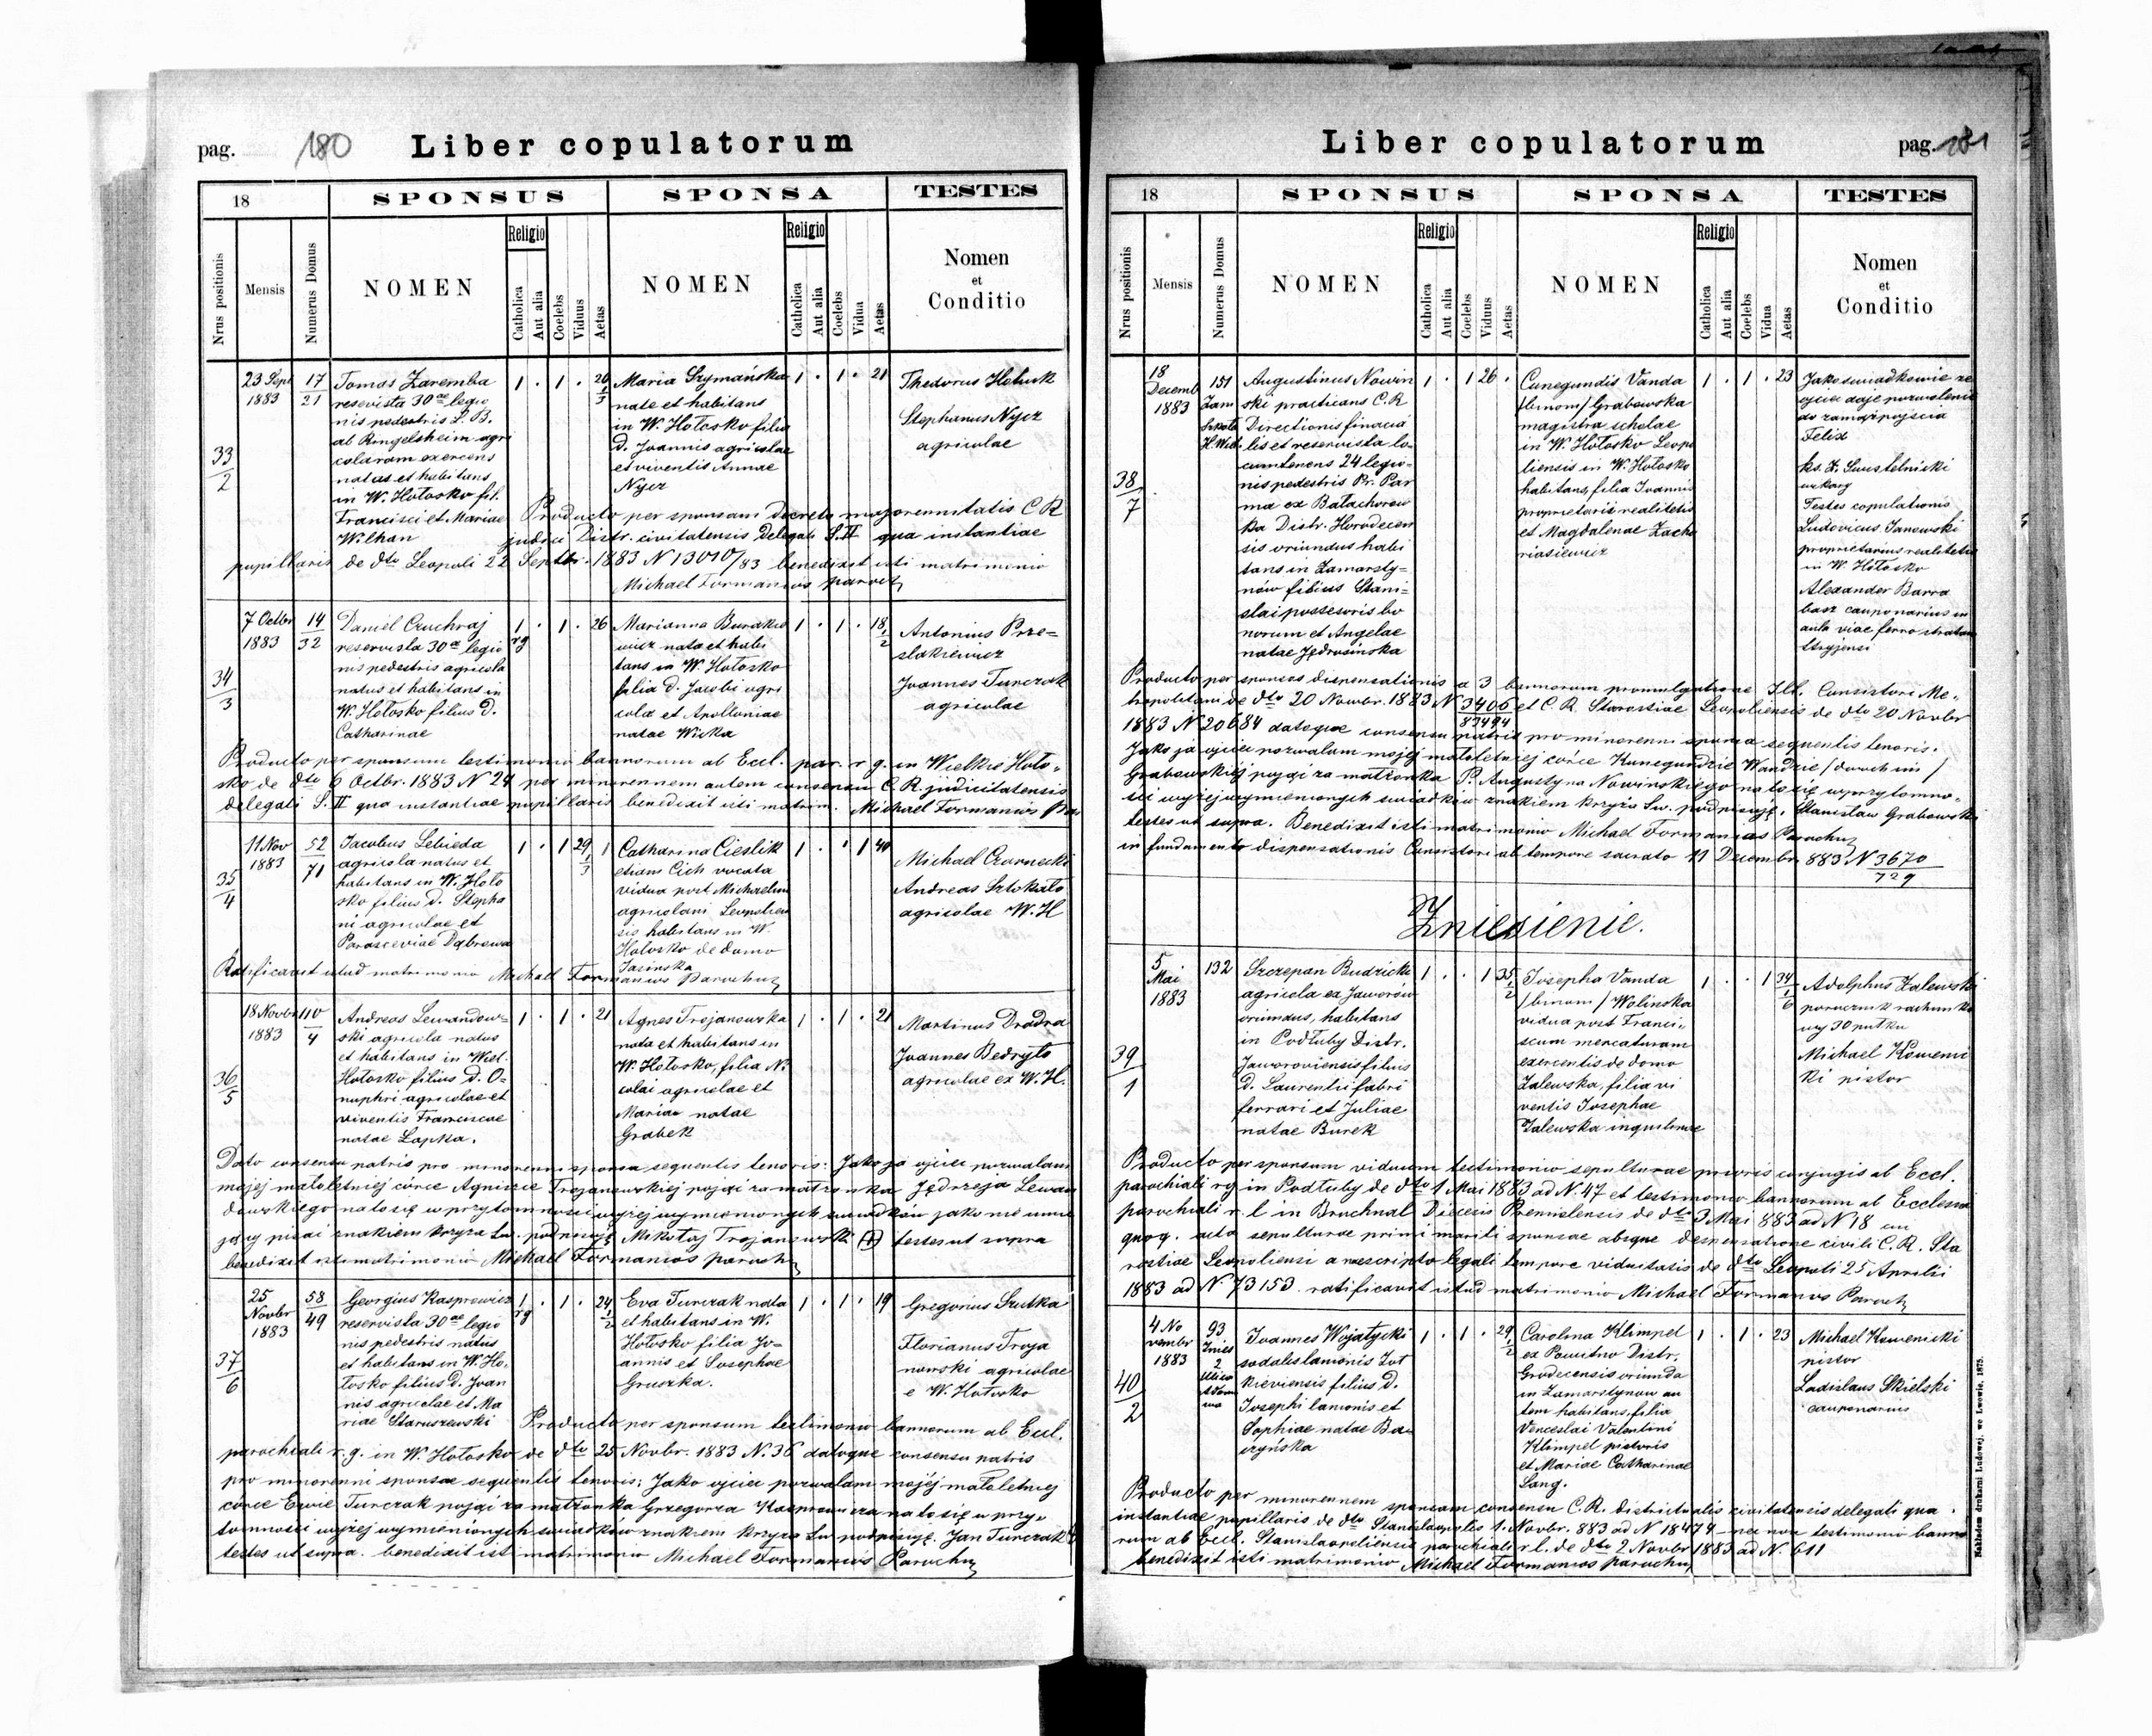 pag. 180 Liber copulatorum
18 SPONSUS SPONSA TESTES
Nrus positionis
Mensis
Numerus Domus
NOMEN
Religio
Catholica
Aut alia
Coelebs
Viduus
Aetas
NOMEN
Religio
Catholica
Aut alia
Coelebs
Vidua
Aetas
Nomen
et
Conditio
33
2
23 Sept
1883
17
21
Tomas Zaremba
reservista 30ae legio
nis pedestris L. B.
ab Ringelsheim agri
colaram exercens
natus et habitans
in W. Hołosko fil.
Francisci et Mariae
Wilhan
1 . 1 .
Maria Szymańska
nata et habitans
in W. Hołosko filia
d. Joannis agricolae
et viventis Annae
Nycz
1 . 1 . 21
Thedorus Hetuk
Stephanus Nycz
agricolae
Producto per sponsam decreto majorennitatis C R
judici Distr. civitatensis Delegati S. II qua instantiae
pupillaris de dto Leopoli 22 Septbr. 1883 N 13010/83 benedixit isti matrimonio
Michael Formanios paroch
34
3
7 Octbr
1883
14
32
Daniel Czuchraj
reservista 30ae legio
nis pedestris agricola
natus et habitans in
W. Hołosko filius d.
Catharinae
1 . 1 . 26
rg
Marianna Burakie
wicz nata et habi
tans in W. Hołosko
filia d. Jacobi agri
cola et Apolloniae
natae Wicka
1 . 1 . 18
2
Antonius Prze=
slakiewicz
Joannes Turczak
agricolae
Producto per sponsum testimonio bannorum ab Eccl. par. r g. in Wielkie Hoło=
sko de dto 6 Octbr. 1883 N 24 per minorennem autem consensu C. R. judicitatensis
delegati S. II qua instantiae pupillaris benedixit isti matrim. Michael Formanios Par
35
4
11 Nov
1883
52
71
Jacobus Lebieda
agricola natus et
habitans in W. Hoło
sko filius d. Stepha
ni agricolae et
Parasceviae Dąbrowa
1 . . 1 29
Catharina Cieslik
etiam Cich vocata
vidua post Michaelem
agricolam Leopolien
sis habitans in W.
Hołosko de domo
Jasinska
1 . . 1 40
Michael Czarnecki
Andreas Sztokało
agricolae W. H
Ratificavit istud matrimonio Michael Formanios Parochus
36
5
18 Novbr
1883
110
4
Andreas Lewandow=
ski agricola natus
et habitans in Wiel.
Hołosko filius d. O=
nuphri agricolae et
viventis Franciscae
natae Łapka.
1 . 1 . 21
Agnes Trojanowska
nata et habitans in
W. Hołosko, filia Ni
colai agricolae et
Mariae natae
Grabek
1 . 1 . 21
Martinus Dradra
Joannes Bedryło
agricolae ex W. H.
Dato consensu patris pro minorenni sponsa sequentis tenoris: Jako ja ojciec pozwalam
mojej małoletniej córce Agniszce Trojanowskiej pojąć za małżonka Jędrzeja Lewan
dowskiego na to się w przytomności wyżej wymienionych świadków jako nie umie
jący pisać znakiem krzyża św. podpisuję Mikołaj Trojanowski (+) testes ut supra
benedixit isti matrimonio Michael Formanios paroch
37
6
25
Novbr
1883
58
49
Georgius Kasprewicz
reservista 30ae legio
nis pedestris natus
et habitans in W. Ho=
łosko filius d. Joan
nis agricolae et Ma
riae Staruszewski
1 . 1 . 24
rg 2
Eva Turczak nata
et habitans in W.
Hołosko filia Jo=
annis et Josephae
Gruszka.
1 . 1 . 19
Gregorius Szutka
Florianus Troja
nowski agricolae
e W. Hołosko
Producto per sponsum testimonio bannorum ab Eccl.
parochiali r. g. in W. Hołosko de dto 25 Novbr. 1883 N. 36 datoque consensu patris
pro minorenni sponsae sequentis tenoris: Jako ojciec pozwalam mojéj małoletniej
córce Ewie Turczak pojąć za małżonka Grzegorza Kasprewicza na to się w przy=
tomności wyżej wymienionych świadków znakiem krzyża św. podpisuję. Jan Turczak
testes ut supra. benedixit isti matrimonio Michael Formanios Parochus
Liber copulatorum pag. 181
18 SPONSUS SPONSA TESTES
Nrus positionis
Mensis
Numerus Domus
NOMEN
Religio
Catholica
Aut alia
Coelebs
Viduus
Aetas
NOMEN
Religio
Catholica
Aut alia
Coelebs
Vidua
Aetas
Nomen
et
Conditio
38
7
18
Decemb
1883
151
Augustinus Nowin
ski practicans C. R
Directionis financia
lis et reservista lo=
cumtenens 24 legio=
nis pedestris Pr. Par
ma ex Batachorow
ka Distr. Horodecen
sis oriundus habi
tans in Zamarsty=
nów filius Stani=
slai possesoris bo
norum et Angelae
natae Jędrusinska
1 . 1 26 .
Cunegundis Vanda
/binom/ Grabowska
magistra scholae
in W. Hołosko Leopo
liensis in W. Hołosko
habitans, filia Joannis
proprietarii realitatis
et Magdalenae Zacha
riasiewicz
1 . 1 . 23
Jako świadkowie ze
ojciec daje pozwolenie
do zamążpójścia
Felix
Testes copulationis
Ludovicus Janowski
proprietarius realitatis
in W. Hołosko
Alexander Barra
basz cauponarius in
aula viae ferro stratae
Stryjensi
Producto per sponsos dispensationis a 3 bannorum promulgatione Ill. Consistori Me=
tropolitani de dto 20 Novbr. 1883 N 3406 et C. R. Starostiae Leopoliensis de dto 20 Novbr
1883 N 20684 datoque consensu patris pro minorenni sponsa sequentis tenoris.
Jako ja ojciec pozwalam mojéj małoletniej córce Kunegundzie Wandzie /dwoch im/
Grabowskiéj pojąć za małżonka P. Augustyna Nowinskiego na to się w przytomno=
ści wyżej wymienionych świadków znakiem krzyża św. podpisuję. Stanisław Grabowski
testes ut supra. Benedixit isti matrimonio Michael Formanios Parochus
in fundamento dispensationis Consistori ab tempore sacrato 11 Decembr. 883 N 3670
729
Zniesienie.
39
1
5
Mai
1883
132
Szczepan Budzicki
agricola ex Jaworów
oriundus, habitans
in Podłuby Distr.
Jaworoviensis filius
d. Laurentii fabri
ferrari et Juliae
natae Burek
1 . . 1 35
2
Josepha Vanda
/binom/ Wolinska
vidua post Franci=
scum mercaturam
exercentis de domo
Zalewska, filia vi
ventis Josephae
Zalewska inquilinae
1 . . 1 34
6
Adolphus Zalewski
porucznik rachunko
wy 30 pułku
Michael Kswenic
ki pistor
Producto per sponsum viduum testimonio sepulturae prioris conjugis ab Eccl.
parochiali rg in Podłuby de dto 1 Mai 1883 ad N. 47 et testimonio bannorum ab Ecclesia
parochiali r. l in Bruchnal Diecesis Premislensis de dto 3 Mai 883 ad N 18 cum
quoq. acta sepulturae primi mariti sponsae absque dispensatione civili C. R. Sta
rostiae Leopoliensi a rescripto legali tempore viduitatis de dto Leopoli 25 Aprilii
1883 ad N 73153. ratificavit istud matrimonio Michael Formanos Paroch
40
2
4 No
vembr
1883
93
Znies
2
Joannes Wojatycki
sodalis lanionis Żół
kieviensis filius d.
Josephi lanionis et
Sophiae natae Ba=
czyńska
1 . 1 . 29
2
Carolina Klimpel
ex Powitno Distr.
Grodecensis oriunda
in Zamarstynow au
tem habitans, filia
Venceslai Valentini
Klimpel pistoris
et Mariae Catharinae
Lang.
1 . 1 . 23
Michael Kswenicki
pistor
Ladislaus Skielski
cauponarius
Producto per minorennem sponsam consensu C. R. districtualis civitatensis delegati qua
instantiae pupillaris de dto Stanislaopolis 1. Novbr. 883 ad N 18474 nec non testimonio banno
rum ab Eccl. Stanislaopoliensis parochiali r l. de dto 2 Novbr 1883 ad N. 611
benedixit isti matrimonio Michael Formanios parochus
Nakładem drukarni Ludowej, we Lwowie. 1875.